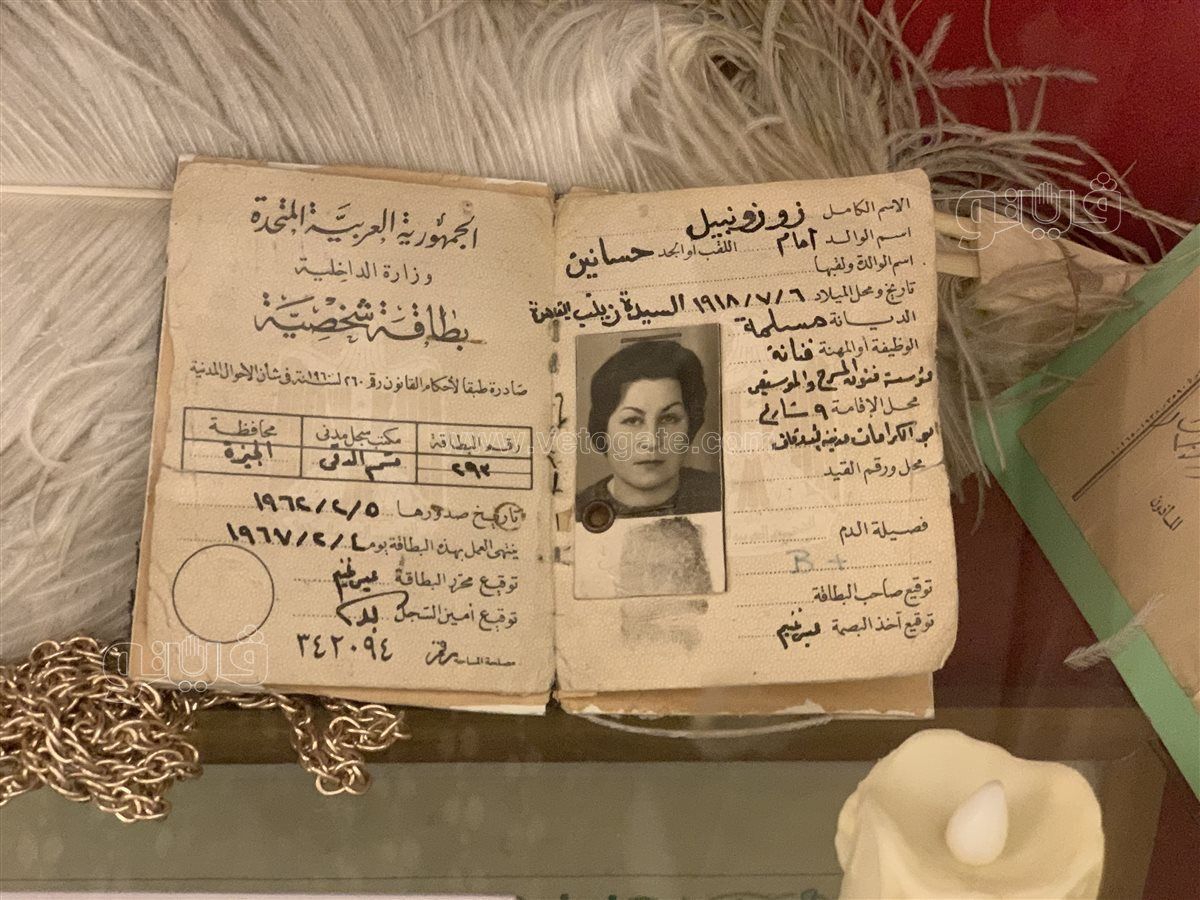 الجمهورية العربية المتحدة
وزارة الداخلية
بطاقة شخصية
صادرة طبقا لأحكام القانون رقم ٢٦٠ لسنة ١٩٦٠ فى شأن الأحوال المدنية
رقم البطاقة مكتب سجل مدنى محافظة
٢٩٣ قسم الدقى الجيزة
تاريخ صدورها ١٩٦٢/٢/٥
ينتهى العمل بهذه البطاقة يوم ١٩٦٧/٢/٤
توقيع محرر البطاقة
توقيع أمين السجل
٣٤٢٠٩٤
مصلحة المساحة
الاسم الكامل زوزو نبيل
اسم الوالد امام اللقب أو الجد حسانين
اسم الوالدة ولقبها
تاريخ ومحل الميلاد ١٩١٨/٧/٦ السيدة زينب القاهرة
الديانة مسلمة
الوظيفة أو المهنة فنانة
مؤسسة فنون المسرح والموسيقى
محل الإقامة ٩ شارع
ابو الكرامات مدينة
محل ورقم القيد
فصيلة الدم
B +
توقيع صاحب البطاقة
توقيع آخذ البصمة
فيتو
www.vetogate.com
فيتو